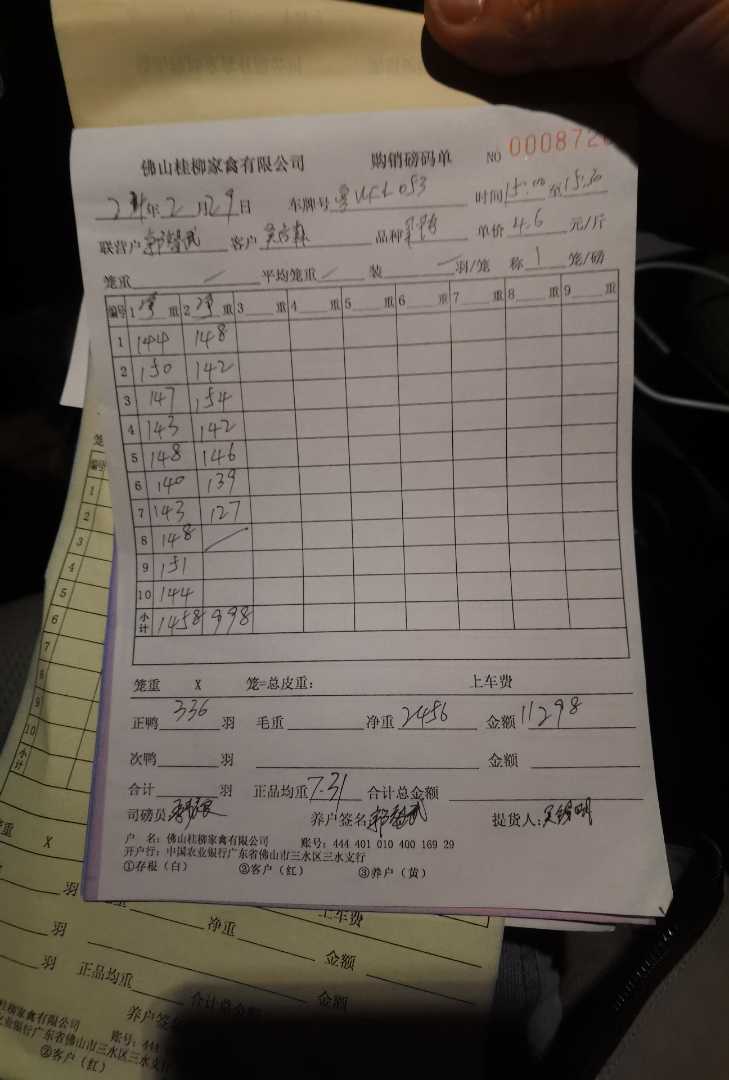 佛山桂柳家禽有限公司 购销磅码单 NO 000872
24年2月29日 车牌号 053 时间15:00至15:30
联营户 客户 品种 单价4.6元/斤
笼重 平均笼重 装 羽/笼 称1笼/磅
编号 1净重 2净重 3重 4重 5重 6重 7重 8重 9重
1 144 148
2 150 142
3 147 154
4 143 142
5 148 146
6 140 139
7 143 127
8 148
9 151
10 144
小计 1458 998
笼重 X 笼=总皮重: 上车费
正鸭336羽 毛重 净重2456 金额11298
次鸭 羽 金额
合计 羽 正品均重7.31 合计总金额
司磅员 养户签名 提货人:
户 名: 佛山桂柳家禽有限公司 账号: 444 401 010 400 169 29
开户行: 中国农业银行广东省佛山市三水区三水支行
①存根(白) ②客户(红) ③养户(黄)
笼
编号
1
2
3
4
5
6
7
8
9
10
小计
重 X 上车费
羽 净重 金额
羽 正品均重 合计总金额 金额
养户签
桂柳家禽有限公司 账号: 444
业银行广东省佛山市三水区三水支行
②客户(红)